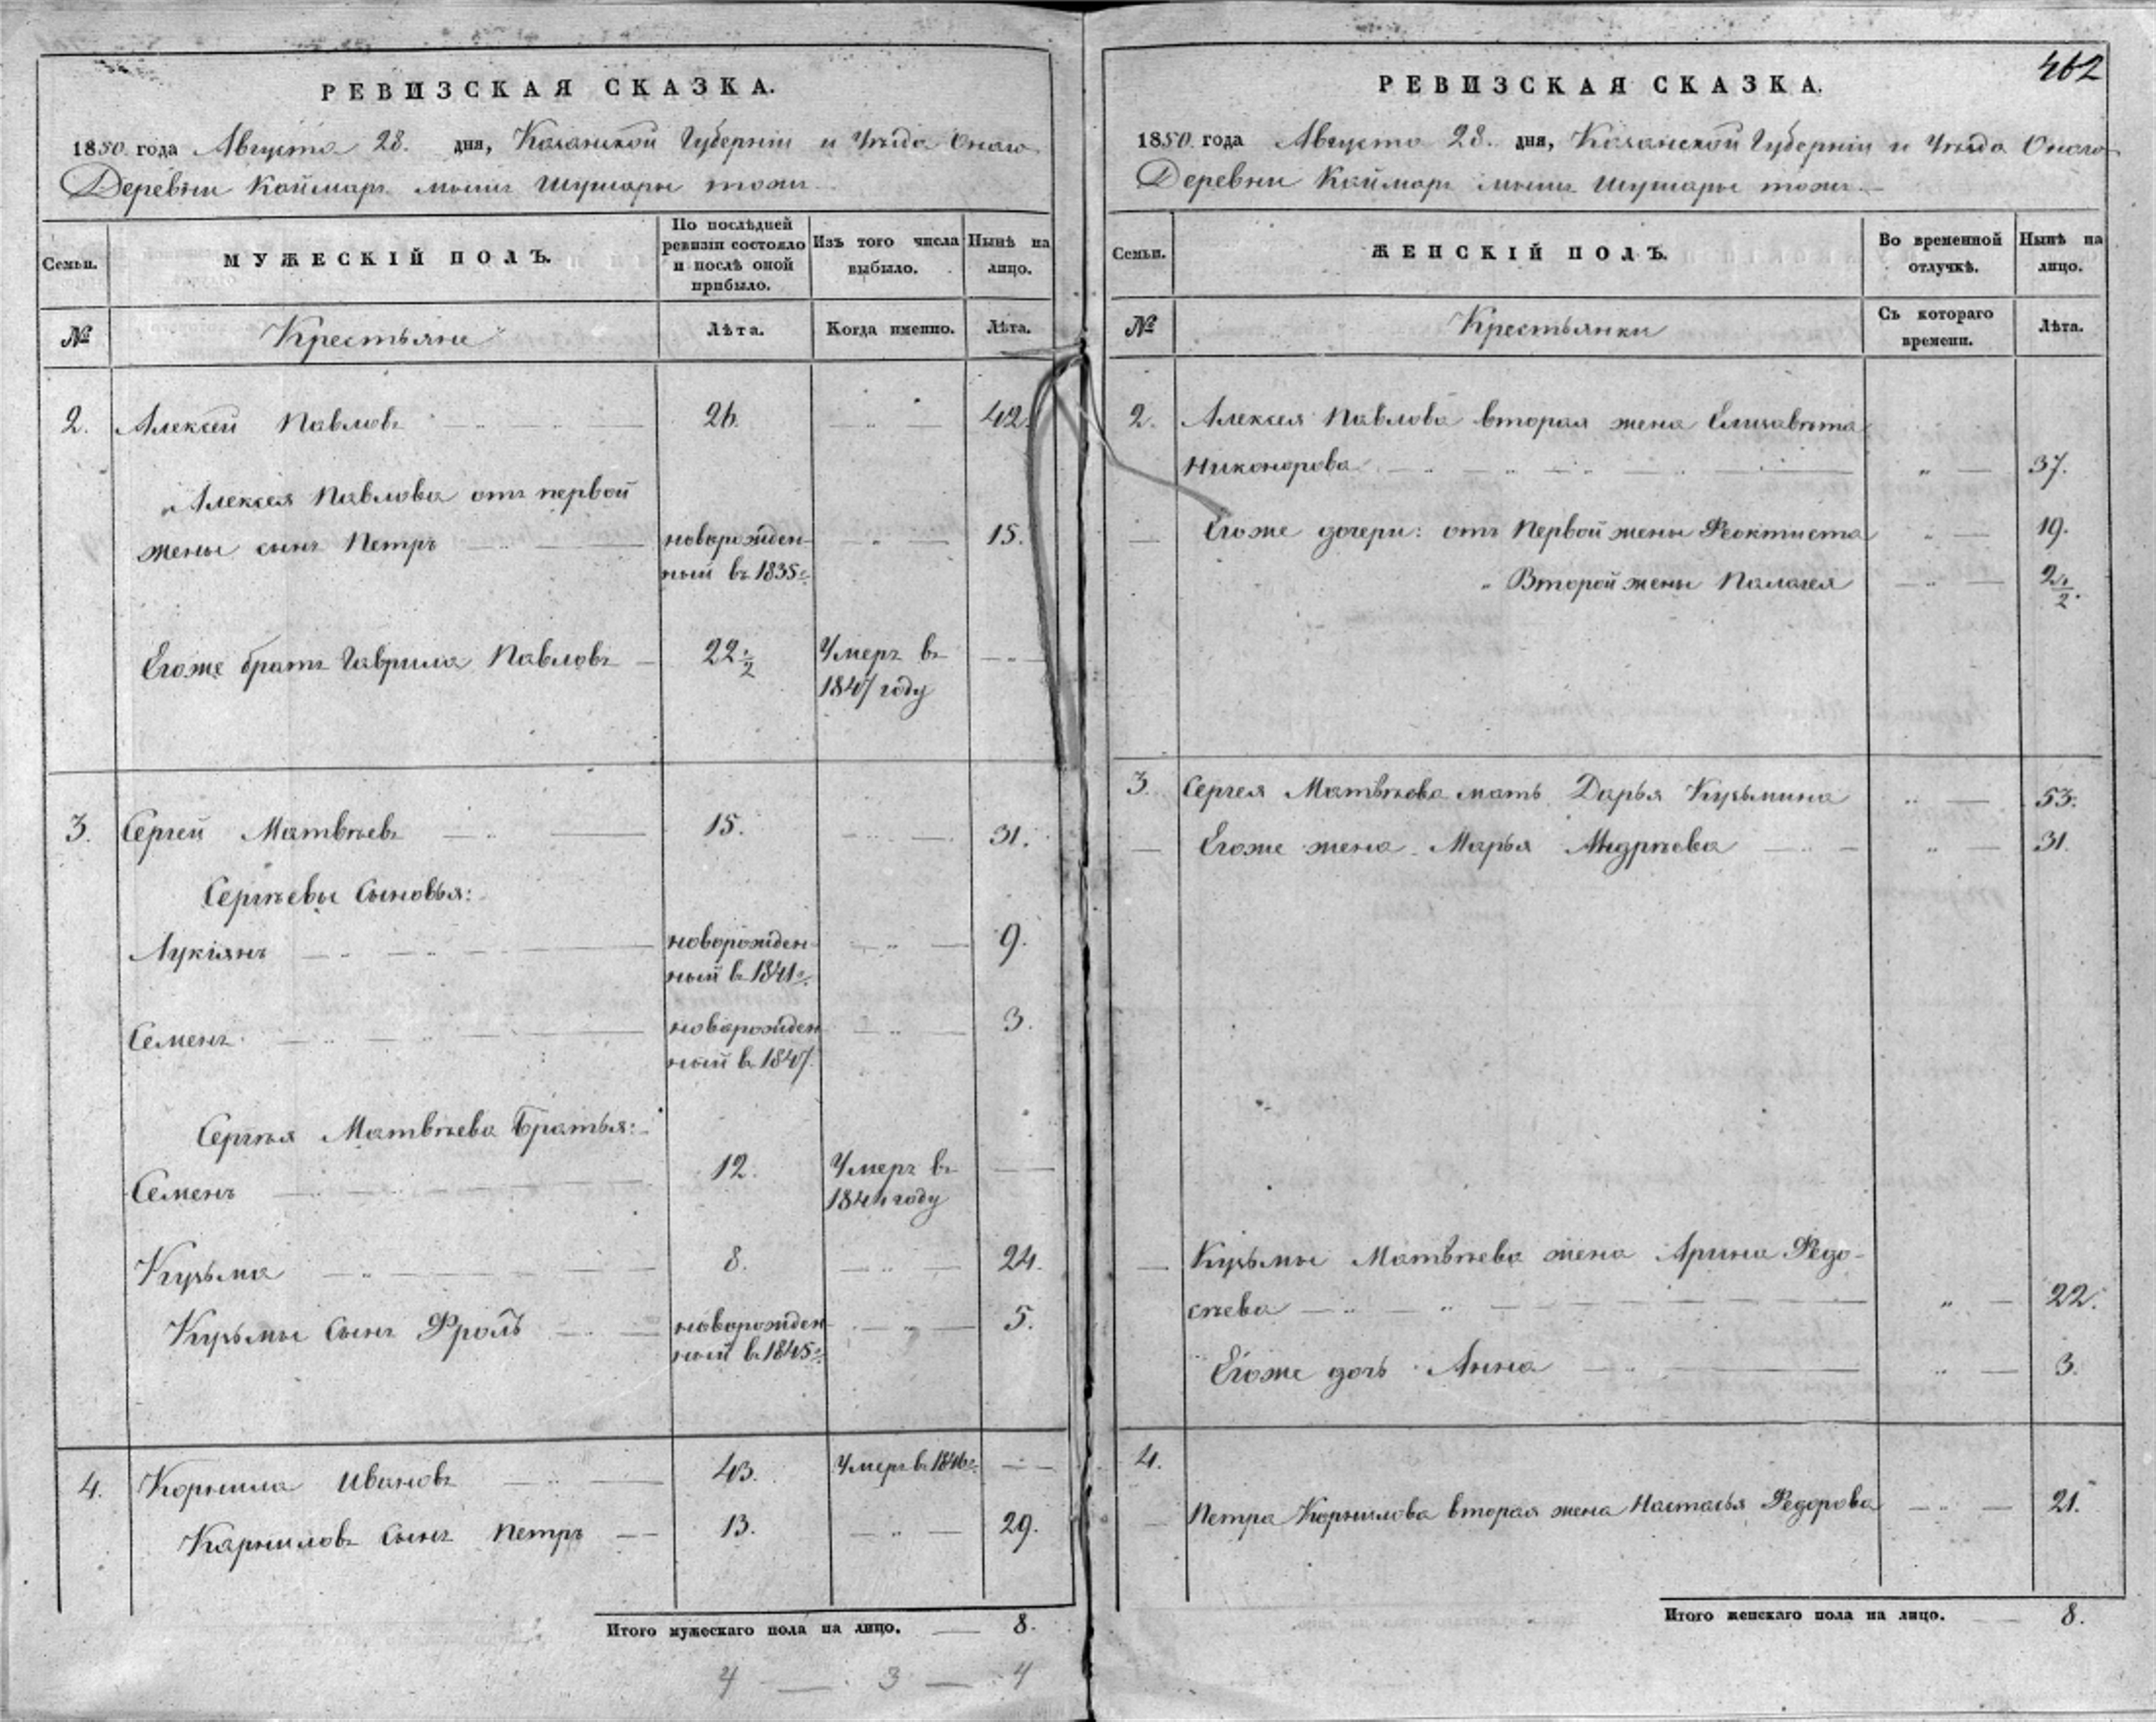 462
РЕВИЗСКАЯ СКАЗКА.
1850 года Августа 28. дня, Казанской Губерніи и Уѣзда Онаго
Деревни Каймаръ мыши Шушары тожъ
Семьи.
МУЖЕСКІЙ ПОЛЪ.
По послѣдней ревизіи состояло и послѣ оной прибыло.
Изъ того числа выбыло.
Нынѣ на лицо.
№
Крестьяне
Лѣта.
Когда именно.
Лѣта.
2. Алексей Павловъ 26. 42.
Алексея Павлова отъ первой
жены сынъ Петръ новорожден- 15.
ный въ 1835г.
Егоже братъ Гаврила Павловъ 22 1/2 Умеръ въ
1847 году
3. Сергей Матвѣевъ 15. 31.
Сергѣевы Сыновья:
Лукіянъ новорожден- 9.
ный въ 1841г.
Семенъ новорожден 3.
ный въ 1847.
Сергѣя Матвѣева Братья:
Семенъ 12. Умеръ въ
1844 году
Кузьма 8. 24.
Кузьмы Сынъ Фролъ новорожден 5.
ный въ 1845г.
4. Корнила Ивановъ 43. Умеръ въ 1846г.
Карниловъ Сынъ Петръ 13. 29.
Итого мужескаго пола на лицо. 8.
4 — 3 — 4
РЕВИЗСКАЯ СКАЗКА.
1850 года Августа 28. дня, Казанской Губерніи и Уѣзда Онаго
Деревни Каймаръ мыши Шушары тожъ
Семьи.
ЖЕНСКІЙ ПОЛЪ.
Во временной отлучкѣ.
Нынѣ на лицо.
№
Крестьянки
Съ котораго времени.
Лѣта.
2. Алексея Павлова вторая жена Елизавѣта
Никонорова 37.
Егоже дочери: отъ Первой жены Феоктиста 19.
" Второй жены Палагея 2 1/2.
3. Сергея Матвѣева мать Дарья Кузьмина 53.
Егоже жена Марья Андрѣева 31.
Кузьмы Матвѣева жена Арина Федо-
сѣева 22.
Егоже дочь Анна 3.
4.
Петра Корнилова вторая жена Настасья Федорова 21.
Итого женскаго пола на лицо. 8.